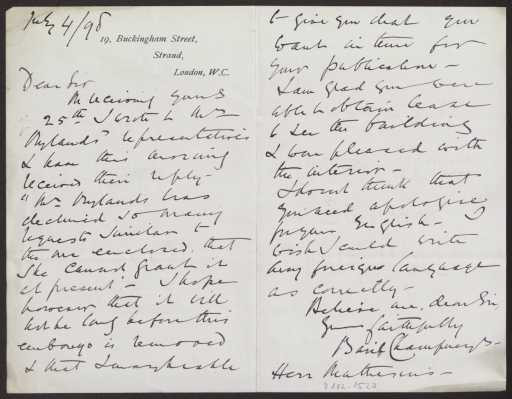 July 4/98
19, Buckingham Street,
Strand,
London, W.C.
Dear Sir
On receiving yours
25th I wrote to Mrs
Rylands' representatives
& have this morning
received their reply -
"Mrs Rylands has
declined so many
requests similar to
the one enclosed, that
she cannot grant it
at present" - I hope
however that it will
not be long before this
embargo is removed
& that I may be able
to give you what you
want in time for
your publication -
I am glad you were
able to obtain leave
to see the building
& were pleased with
the interior -
I do not think that
you need apologise
for your English - I
wish I could write
any foreign language
as correctly -
Believe me, dear Sir,
Yours faithfully
Basil Champneys -
Herr Muthesius -